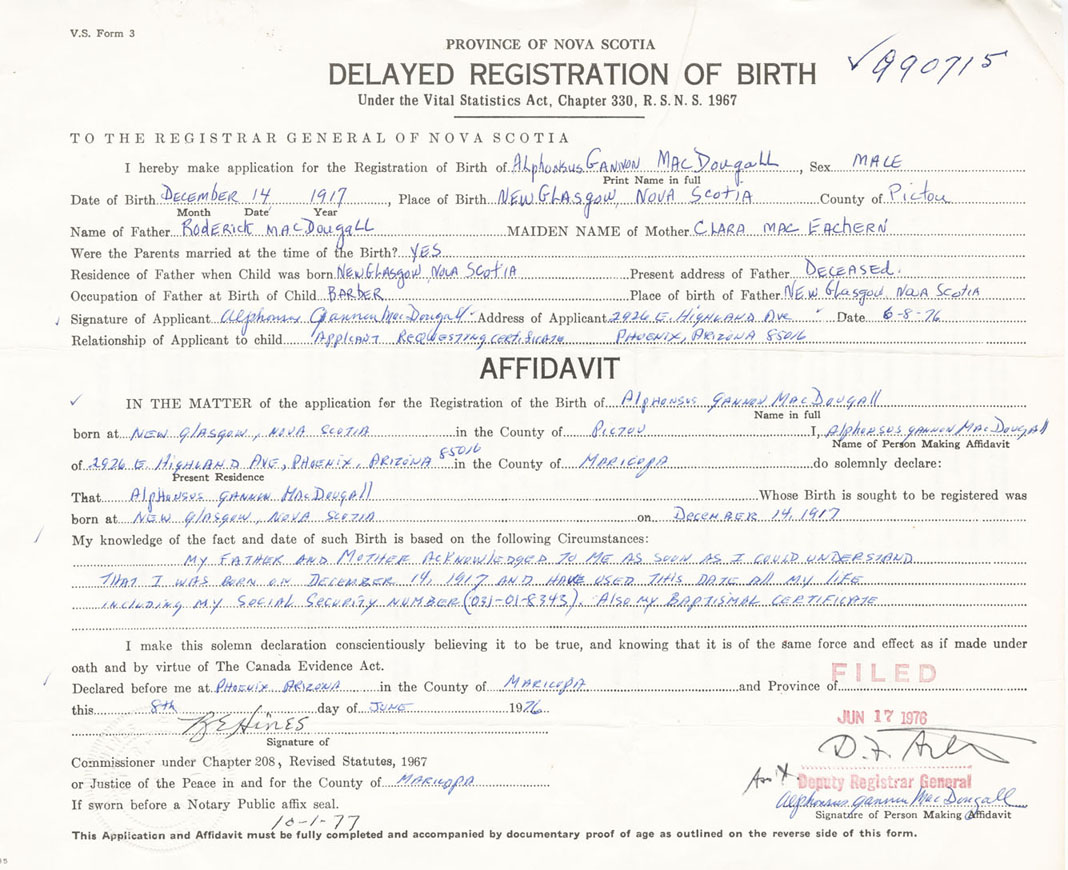 V.S. Form 3
PROVINCE OF NOVA SCOTIA
DELAYED REGISTRATION OF BIRTH
✓990715
Under the Vital Statistics Act, Chapter 330, R.S.N.S. 1967
TO THE REGISTRAR GENERAL OF NOVA SCOTIA
I hereby make application for the Registration of Birth of Alphonsus Gannon MacDougall, Sex MALE
Print Name in full
Date of Birth December 14 1917, Place of Birth New Glasgow, Nova Scotia County of Pictou
Month Date Year
Name of Father Roderick MacDougall MAIDEN NAME of Mother Clara Mac Eachern
Were the Parents married at the time of the Birth? YES
Residence of Father when Child was born New Glasgow, Nova Scotia Present address of Father Deceased.
Occupation of Father at Birth of Child Barber Place of birth of Father New Glasgow, Nova Scotia
Signature of Applicant Alphonsus Gannon MacDougall Address of Applicant 2926 E. Highland Ave Date 6-8-76
Relationship of Applicant to child Applicant Requesting certificate Phoenix, Arizona 85016
AFFIDAVIT
✓ IN THE MATTER of the application for the Registration of the Birth of Alphonsus Gannon MacDougall
Name in full
born at New Glasgow, Nova Scotia in the County of Pictou I, Alphonsus Gannon MacDougall
Name of Person Making Affidavit
of 2926 E. Highland Ave, Phoenix, Arizona 85016 in the County of Maricopa do solemnly declare:
Present Residence
That Alphonsus Gannon MacDougall Whose Birth is sought to be registered was
born at New Glasgow, Nova Scotia on December 14, 1917
My knowledge of the fact and date of such Birth is based on the following Circumstances:
My Father and Mother acknowledged to me as soon as I could understand
that I was born on December 14, 1917 and have used this date all my life
including my Social Security Number (031-01-8343). Also my Baptismal Certificate
I make this solemn declaration conscientiously believing it to be true, and knowing that it is of the same force and effect as if made under
oath and by virtue of The Canada Evidence Act.
FILED
Declared before me at Phoenix Arizona in the County of Maricopa and Province of
this 8th day of June 1976
JUN 17 1976
Signature of
Commissioner under Chapter 208, Revised Statutes, 1967
Deputy Registrar General
or Justice of the Peace in and for the County of Maricopa
Alphonsus Gannon MacDougall
If sworn before a Notary Public affix seal.
Signature of Person Making Affidavit
10-1-77
This Application and Affidavit must be fully completed and accompanied by documentary proof of age as outlined on the reverse side of this form.